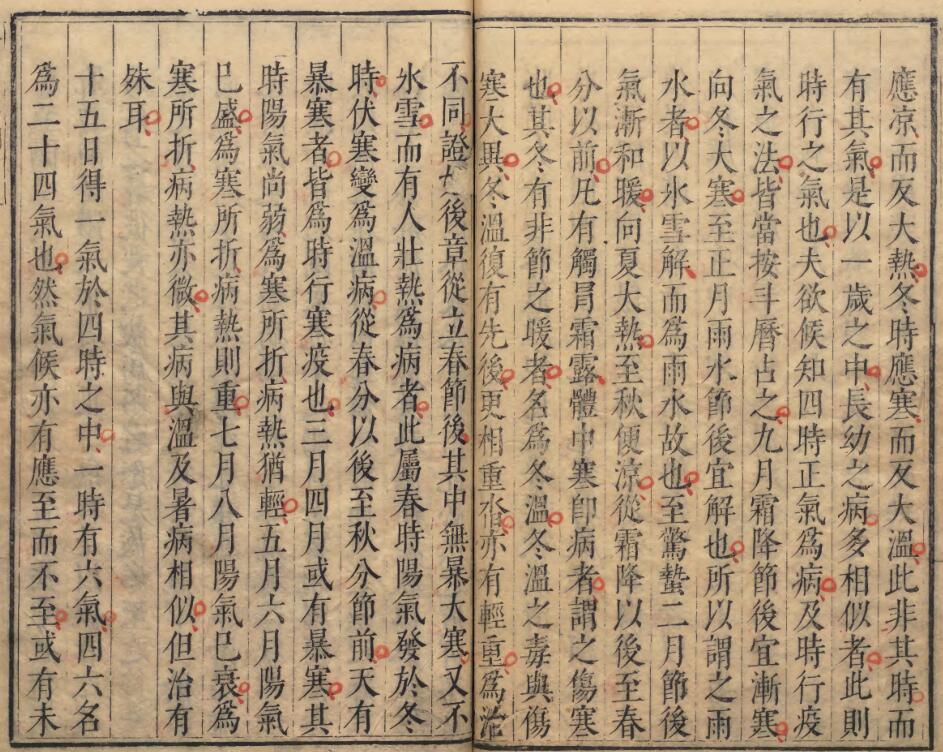 應凉而反大熱冬時應寒而反大溫此非其時而
有其氣是以一歲之中長幼之病多相似者此則
時行之氣也夫欲候知四時正氣爲病及時行疫
氣之法皆當按斗曆占之九月霜降節後宜漸寒
向冬大寒至正月雨水節後宜解也所以謂之雨
水者以氷雪解而爲雨水故也至驚蟄二月節後
氣漸和暖向夏大熱至秋便涼從霜降以後至春
分以前凡有觸冐霜露體中寒卽病者謂之傷寒
也其冬有非節之暖者名爲冬溫冬溫之毒與傷
寒大異冬溫復有先後更相重沓亦有輕重爲治
不同證如後章從立春節後其中無暴大寒又不
氷雪而有人壯熱爲病者此屬春時陽氣發於冬
時伏寒變爲溫病從春分以後至秋分節前天有
暴寒者皆爲時行寒疫也三月四月或有暴寒其
時陽氣尚弱爲寒所折病熱猶輕五月六月陽氣
已盛爲寒所折病熱則重七月八月陽氣已衰爲
寒所折病熱亦微其病與溫及暑病相似但治有
殊耳
十五日得一氣於四時之中一時有六氣四六名
爲二十四氣也然氣候亦有應至而不至或有未